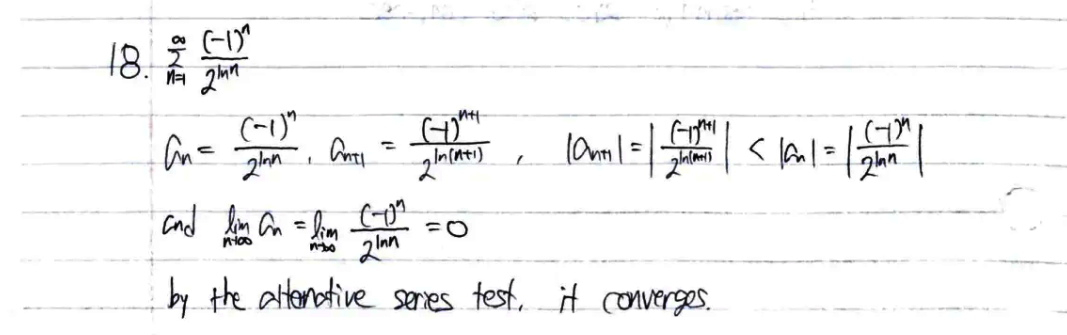 18. $\sum_{n=1}^{\infty} \frac{(-1)^n}{2^{\ln n}}$
$a_n = \frac{(-1)^n}{2^{\ln n}}, a_{n+1} = \frac{(-1)^{n+1}}{2^{\ln(n+1)}}, |a_{n+1}| = \left|\frac{(-1)^{n+1}}{2^{\ln(n+1)}}\right| < |a_n| = \left|\frac{(-1)^n}{2^{\ln n}}\right|$
and $\lim_{n \to \infty} a_n = \lim_{n \to \infty} \frac{(-1)^n}{2^{\ln n}} = 0$
by the alternative series test, it converges.